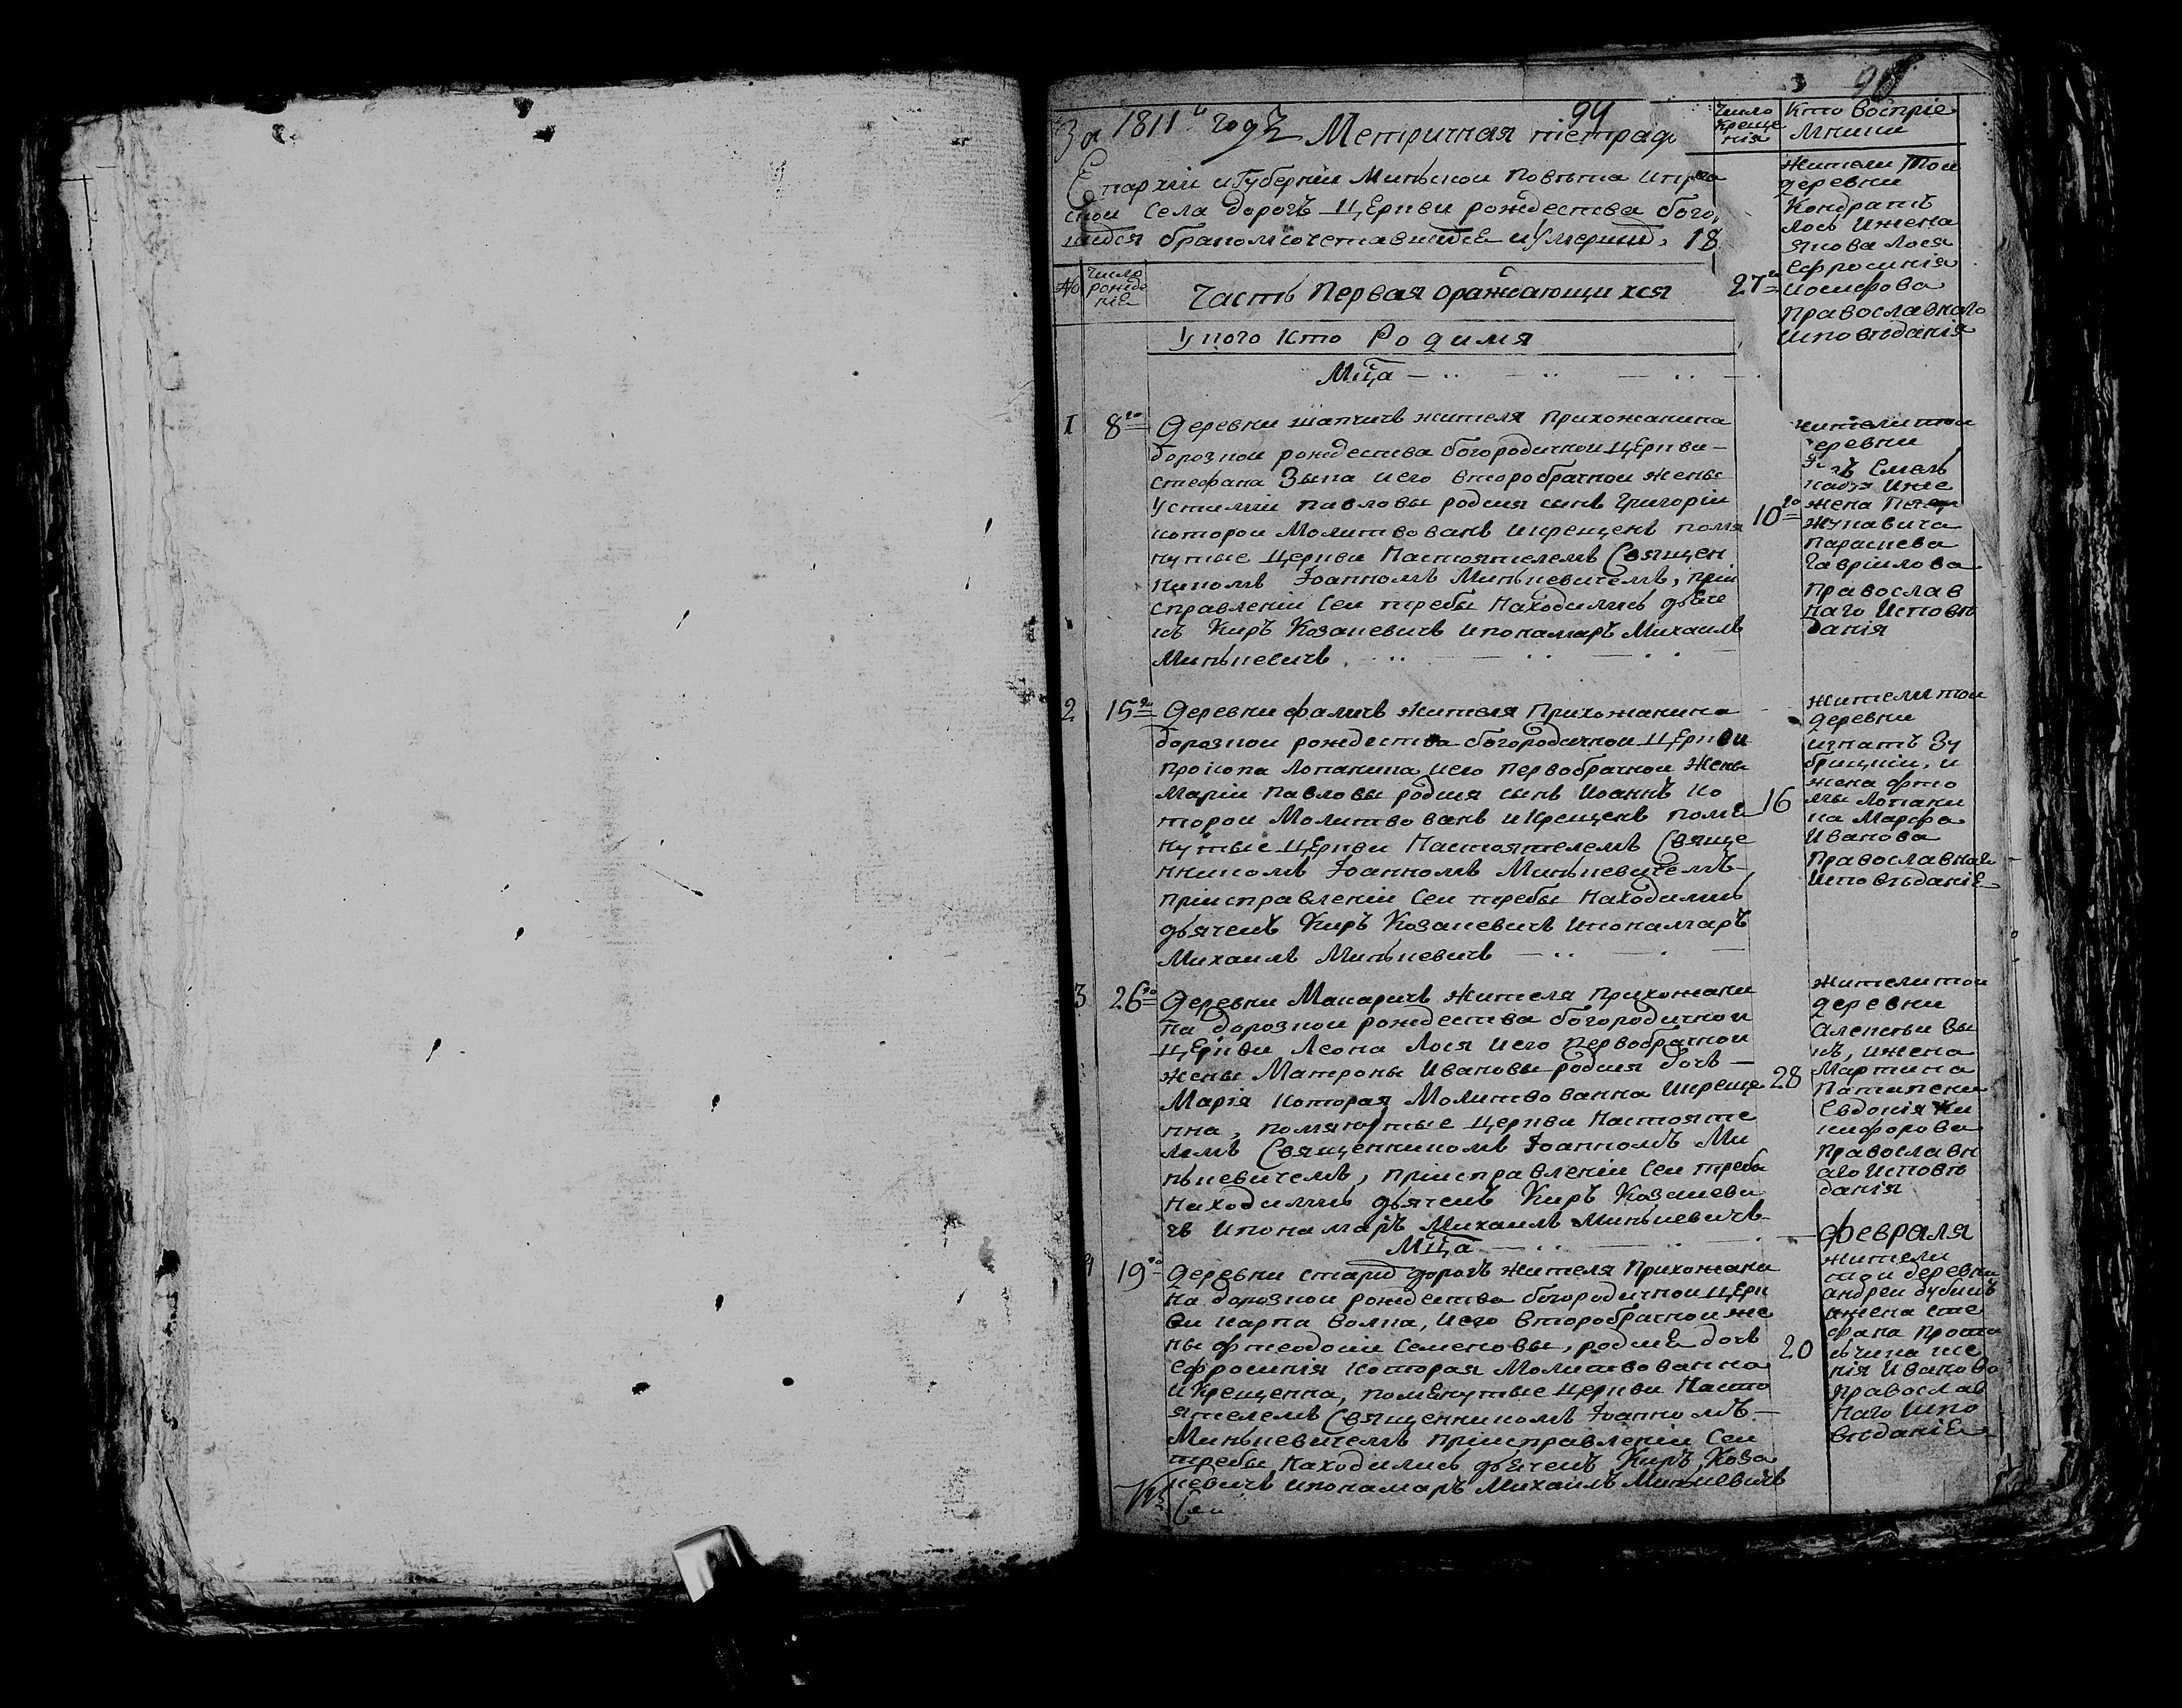 99
За 1811 годъ Метричная тетрад
Епархіи и Губерніи Минской Повѣта
ской Села дорогъ Церкви рождества бого
щихся бракомсочетавшихся иУмершихъ 18
Число крещенія
Кто воспріе
мники
№
Число рожденіе
Часть Первая оражающихся
Укого Кто Родился
Жители Той
деревни
Кондратъ
Лось Ижена
Якова Лося
Ефросинія
27го
иосифова
Православнаго
Исповѣданія
Мца
1
8го
Деревни шапчичъ жителя Прихожанина
дорозкой рождества богородичной Церкви
стефана Зыка иего второбрачной жены
Устиміи павловы родися сынъ Григоріи
которой Молитвованъ икрещенъ помя
нутые Церкви Настоятелемъ Священ
никомъ Іоанномъ Минкевичемъ, при
справленіи Сеи требы Находились дьяче
къ Киръ Козакевичъ ипонамаръ Михаилъ
Минькевичъ
жители той
деревни
10го
жена
Жукавича
Параскева
Гавріилова
Православ
наго Исповѣ
данія
2
15го
Деревни фаличъ жителя Прихожанина
дорозкой рождества богородичной Церкви
прокопа Лопакина иего Первобрачной жены
Маріи Павловы родися сынъ Иоаннъ Ко
торой Молитвованъ икрещенъ помя
нутые Церкви Настоятелемъ Свяще
нникомъ Іоанномъ Минькевичемъ
приисправленіи Сеи требы Находились
дьячекъ Киръ Козакевичъ ипонамаръ
Михаилъ Минькевичъ
жители той
деревни
игнатъ Зу
брицкіи, и
жена фто
16
мы Лопаки
на Марфа
Иванова
Православнаго
Исповѣданіе
3
26го
Деревни Макаричъ жителя Прихожани
на дорозкой рождества богородичной
Церкви Леона Лося иего Первобрачной
жены Матроны Ивановы родися дочъ
Марія которая Молитвованна икреще
нна, помянутые Церкви Настояте
лемъ Священникомъ Іоанномъ Ми
нькевичемъ, приисправленіи Сеи требы
Находились дьячекъ Киръ Козакеви
чъ ипонамаръ Михаилъ Минькевичъ
жители той
деревни
Алексеи Вы
къ, ижена
28
Мартина
Евдокія Ни
кифорова
Православн
аго Исповѣ
данія
Мца
февраля
4
19го
Деревни старих дорогъ жителя Прихожани
на дорозкой рождества богородичной Церк
ви карпа Волка, иего второбрачной же
ны фтеодосіи Семеновы, родися дочъ
Ефросинія которая Молитвованна
икрещенна, помянутые Церкви Насто
ятелемъ Священникомъ Іоанномъ
Минькевичемъ приисправленіи Сеи
требы Находились дьячекъ Киръ Коза
кевичъ ипонамаръ Михаилъ Минькевичъ
жители
той деревни
андреи
ижена сте
фана
20
нія Иванова
Православ
наго Испо
вѣданіе